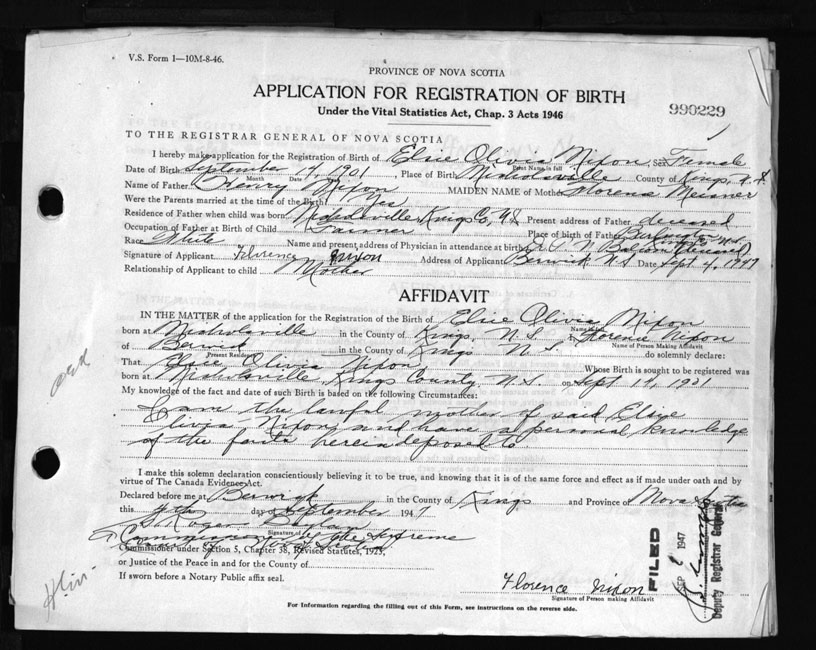 V.S. Form 1—10M-8-46.
PROVINCE OF NOVA SCOTIA
APPLICATION FOR REGISTRATION OF BIRTH
Under the Vital Statistics Act, Chap. 3 Acts 1946
990229
TO THE REGISTRAR GENERAL OF NOVA SCOTIA
I hereby make application for the Registration of Birth of Elsie Olivia Nixon, Sex Female
First Name in full
Date of Birth September 14, 1921, Place of Birth Nicholsville County of Kings, N.S.
Month Date
Name of Father Henry Nixon MAIDEN NAME of Mother Florence Meisner
Were the Parents married at the time of the Birth? Yes
Residence of Father when child was born Nicholsville Kings Co, N.S. Present address of Father deceased
Occupation of Father at Birth of Child Farmer Place of birth of Father Burlington Kings N.S.
Race White Name and present address of Physician in attendance at birth
Signature of Applicant Florence Nixon Address of Applicant Berwick N.S. Date Sept 4, 1947
Relationship of Applicant to child Mother
AFFIDAVIT
IN THE MATTER of the application for the Registration of the Birth of Elsie Olivia Nixon
Name in full
born at Nicholsville in the County of Kings, N.S. I, Florence Nixon
Name of Person Making Affidavit
of Berwick in the County of Kings N.S. do solemnly declare:
Present Residence
That Elsie Olivia Nixon Whose Birth is sought to be registered was
born at Nicholsville, Kings County N.S. on Sept 14, 1921
My knowledge of the fact and date of such Birth is based on the following Circumstances:
I am the lawful mother of said Elsie
Olivia Nixon and have a personal knowledge
of the facts herein deposed to.
I make this solemn declaration conscientiously believing it to be true, and knowing that it is of the same force and effect as if made under oath and by
virtue of The Canada Evidence Act.
Declared before me at Berwick in the County of Kings and Province of Nova Scotia
this 4th day of September 1947
Signature of
A Commissioner of the Supreme
Court of Nova Scotia
Commissioner under Section 5, Chapter 38, Revised Statutes, 1923,
or Justice of the Peace in and for the County of
If sworn before a Notary Public affix seal.
Florence Nixon
Signature of Person making Affidavit
FILED
SEP 1947
Deputy Registrar General
For Information regarding the filling out of this Form, see instructions on the reverse side.